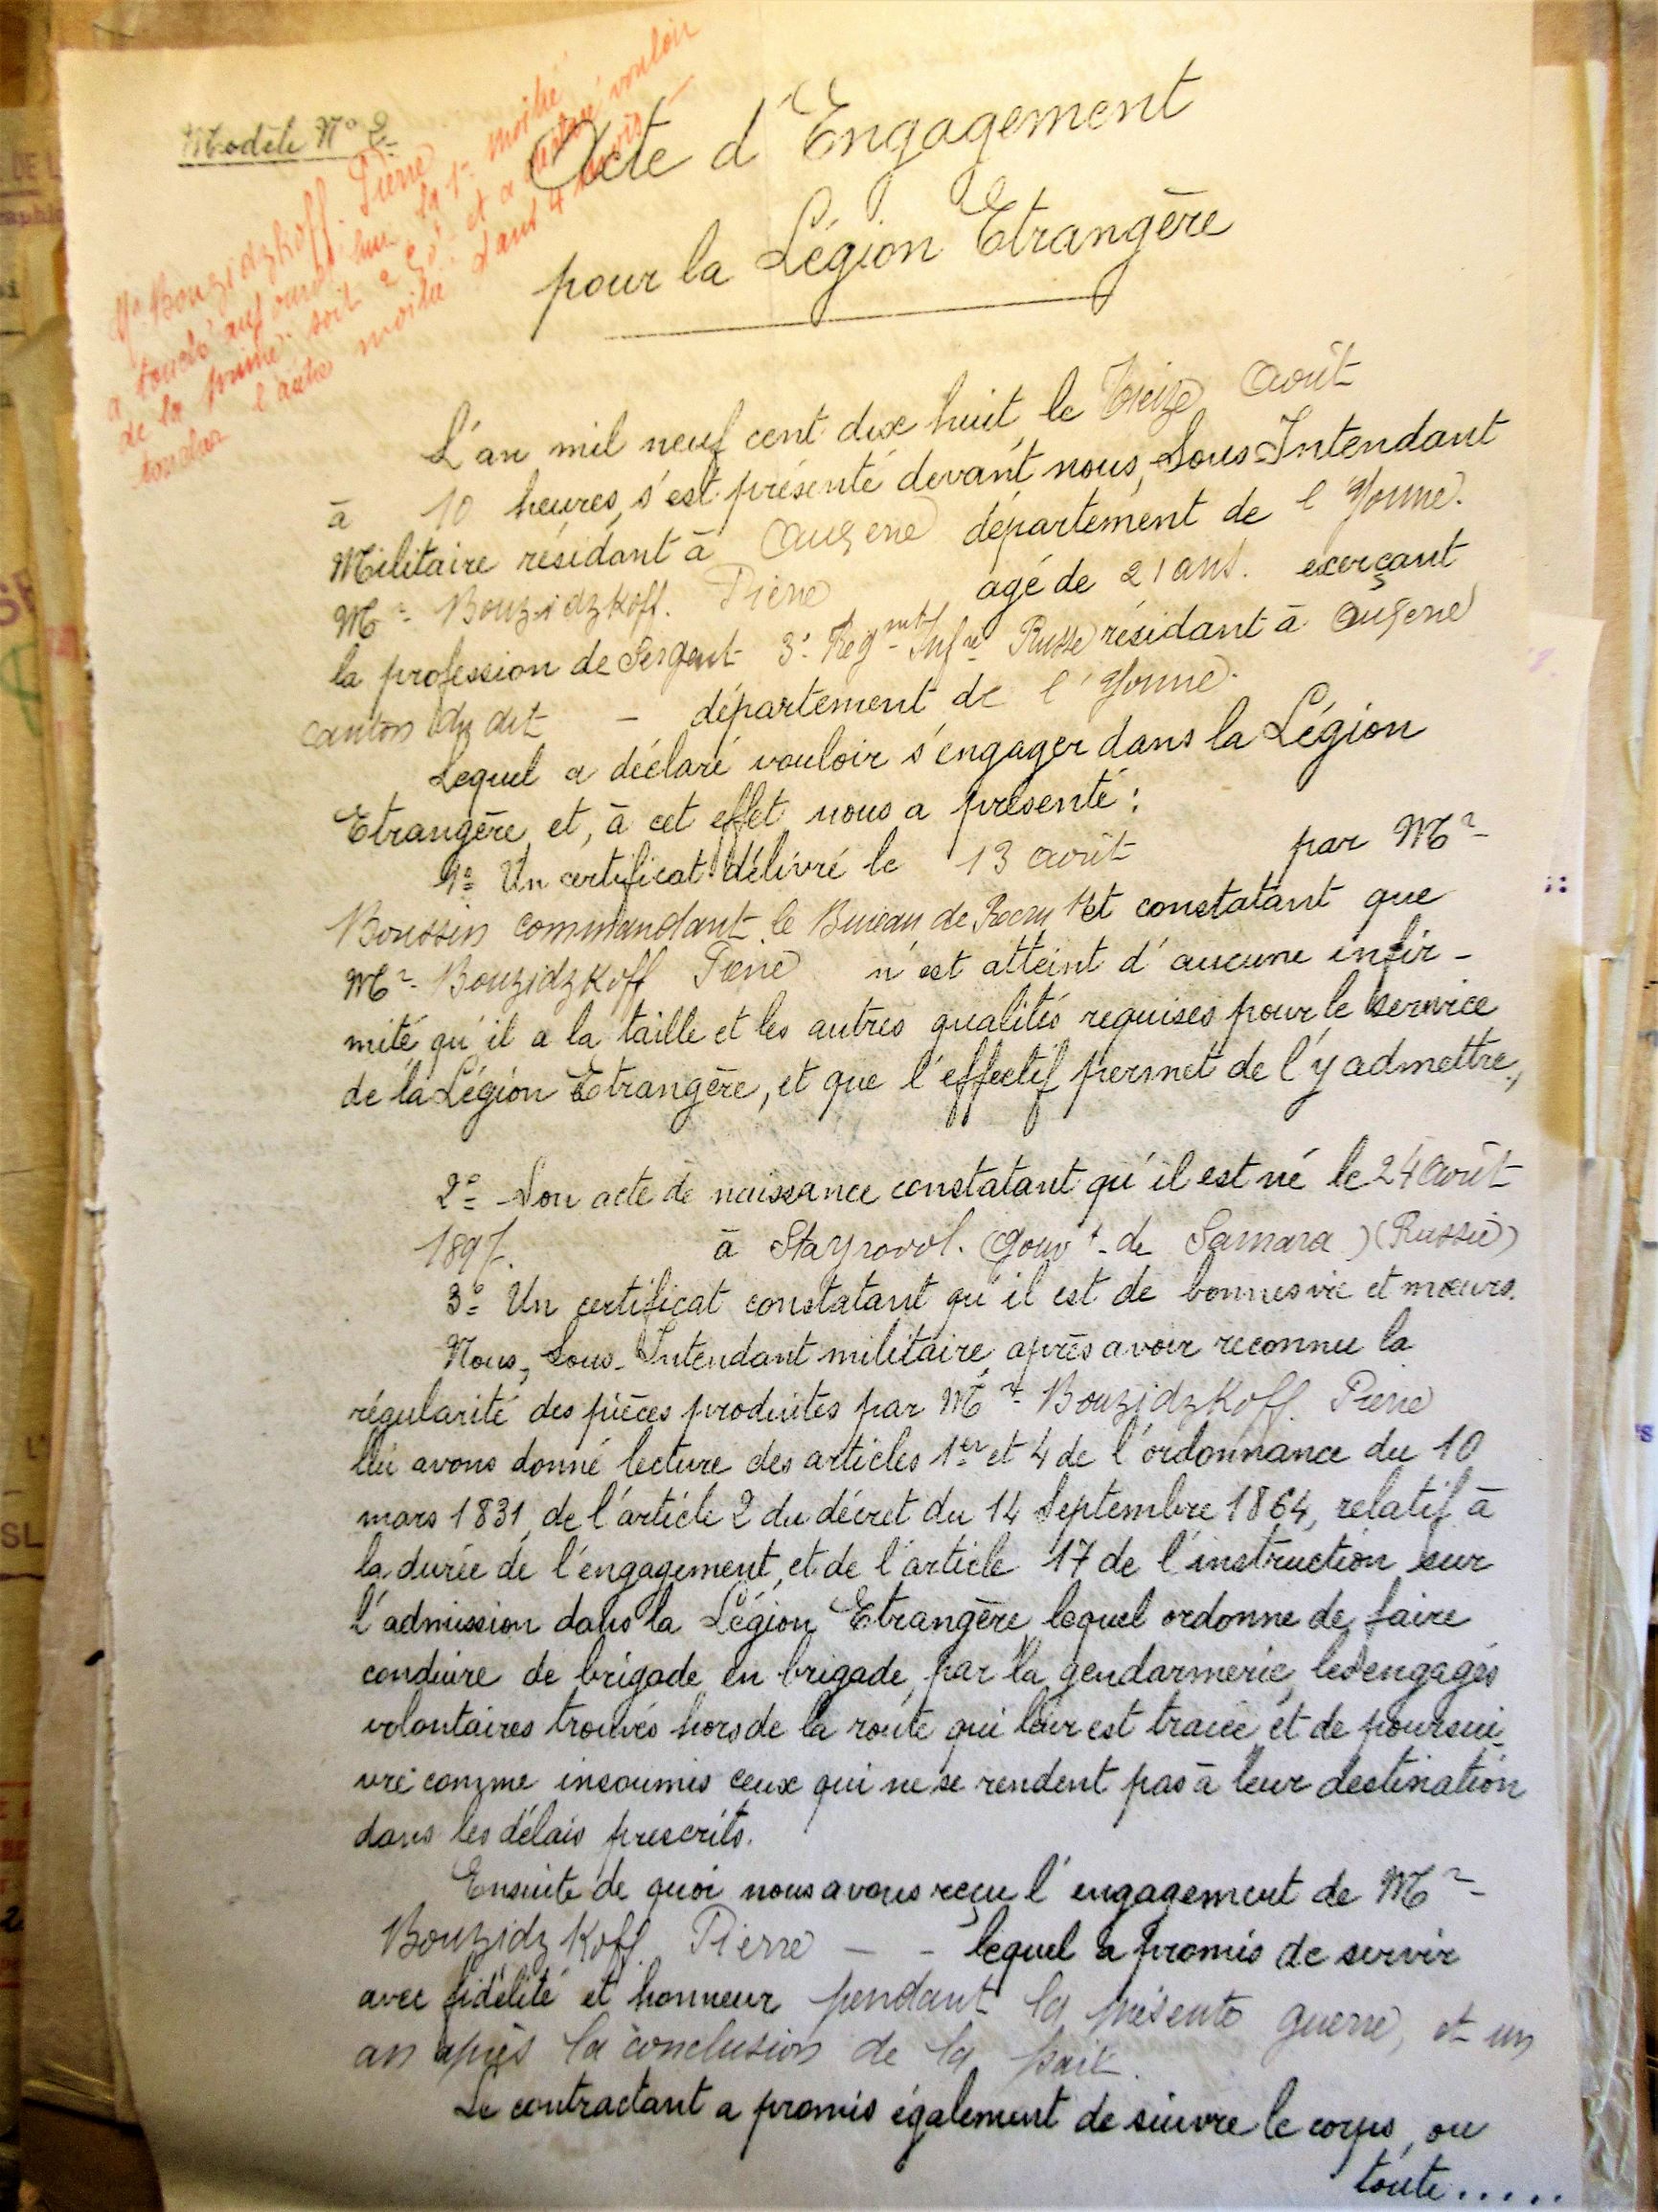 Modèle N° 2
Mr Bouzidzkoff. Pierre
a touché aujourd'hui la 1re moitié
de la prime soit 250f et a déclaré vouloir
toucher l'autre moitié dans 4 mois
Acte d'Engagement
pour la Légion Etrangère
L'an mil neuf cent dix huit, le Treize Août
à 10 heures, s'est présenté devant nous, Sous-Intendant
Militaire résidant à Auxerre département de l'Yonne.
Mr Bouzidzkoff. Pierre agé de 21 ans. exerçant
la profession de Sergent 3e Regmt Infie Russe résidant à Auxerre
canton du dit - département de l'Yonne.
Lequel a déclaré vouloir s'engager dans la Légion
Etrangère, et, à cet effet nous a présenté :
1° Un certificat délivré le 13 août par Mr
Boussin commandant le Bureau de Recrut et constatant que
Mr Bouzidzkoff Pierre n'est atteint d'aucune infir-
mité, qu'il a la taille et les autres qualités requises pour le service
de la Légion Etrangère, et que l'effectif permet de l'y admettre,
2° Son acte de naissance constatant qu'il est né le 24 Août
1897. à (Gouvt de Samara) (Russie)
3° Un certificat constatant qu'il est de bonnes vie et mœurs.
Nous, Sous-Intendant militaire, après avoir reconnu la
régularité des pièces produites par Mr Bouzidzkoff. Pierre
lui avons donné lecture des articles 1er et 4 de l'ordonnance du 10
mars 1831, de l'article 2 du décret du 14 Septembre 1864, relatif à
la durée de l'engagement, et de l'article 17 de l'instruction sur
l'admission dans la Légion Etrangère, lequel ordonne de faire
conduire de brigade en brigade, par la gendarmerie, les engagés
volontaires trouvés hors de la route qui leur est tracée, et de poursui-
vre comme insoumis ceux qui ne se rendent pas à leur destination
dans les délais prescrits.
Ensuite de quoi nous avons reçu l'engagement de Mr
Bouzidzkoff Pierre - - lequel a promis de servir
avec fidélité et honneur pendant la présente guerre, et un
an après la conclusion de la paix.
Le contractant a promis également de suivre le corps, ou
toute.....